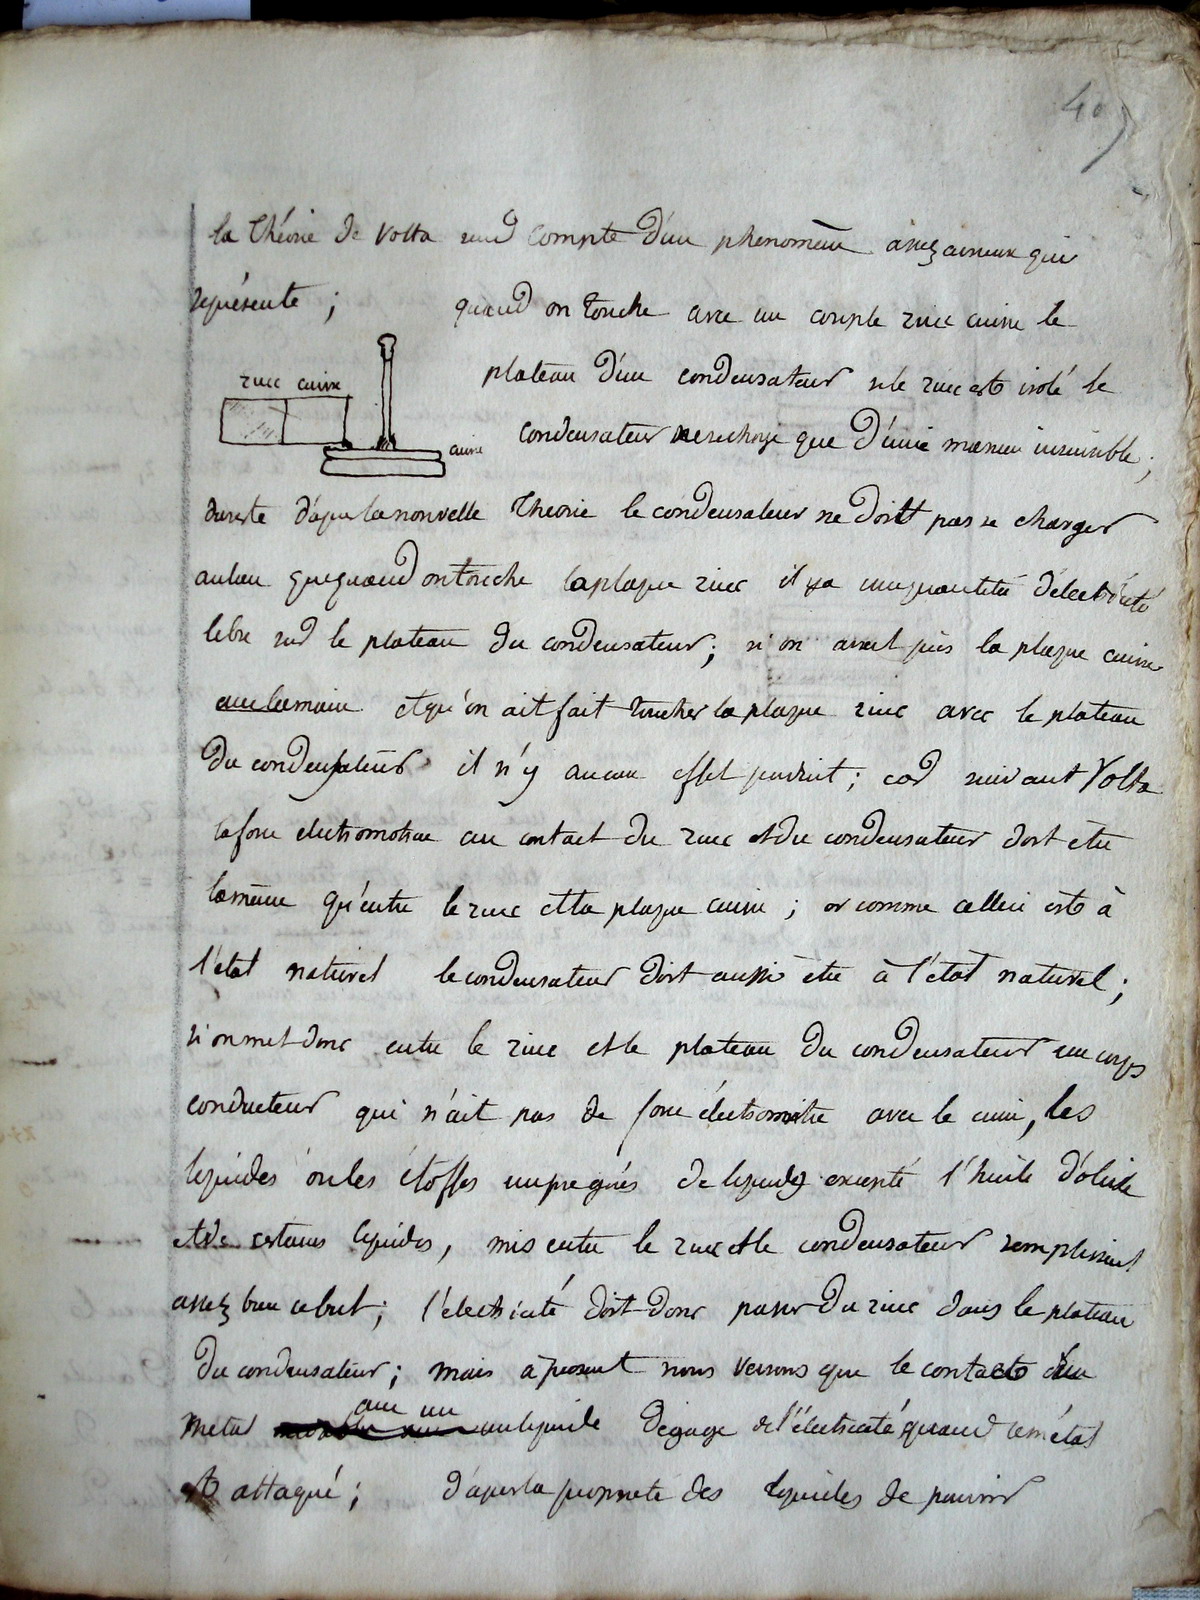 40
la Théorie de Volta rend compte d'un phenomène assez curieux qui
représente ;
quand on touche avec un couple zinc cuivre le
plateau d'un condensateur si le zinc est isolé le
zinc cuivre
condensateur ne se charge que d'une manière insensible ;
cuivre
du reste d'après la nouvelle Theorie le condensateur ne doit pas se charger
au lieu que quand on touche la plaque zinc il y a une quantité d'électricité
libre sur le plateau du condensateur ; si on avait pris la plaque cuivre
avec la main et qu'on ait fait toucher la plaque zinc avec le plateau
du condensateur il n'y aucun effet produit ; car suivant Volta
la force electromotrice au contact du zinc et du condensateur doit etre
la même qu'entre le zinc et la plaque cuivre ; or comme celle ci est à
l'état naturel le condensateur doit aussi etre à l'état naturel ;
si on met donc entre le zinc et le plateau du condensateur un corps
conducteur qui n'ait pas de force électromotrice avec le cuivre, les
liquides ou les étoffes impregnés de liquides excepté l'huile d'olive
et de certains liquides, mis entre le zinc et le condensateur remplissent
assez bien ce but ; l'électricité doit donc passer du zinc dans le plateau
du condensateur ; mais à présent nous verrons que le contact d'un
avec un
metal un liquide dégage de l'électricité quand le métal
est attaqué ; d'après la propriété des liquides de pouvoir